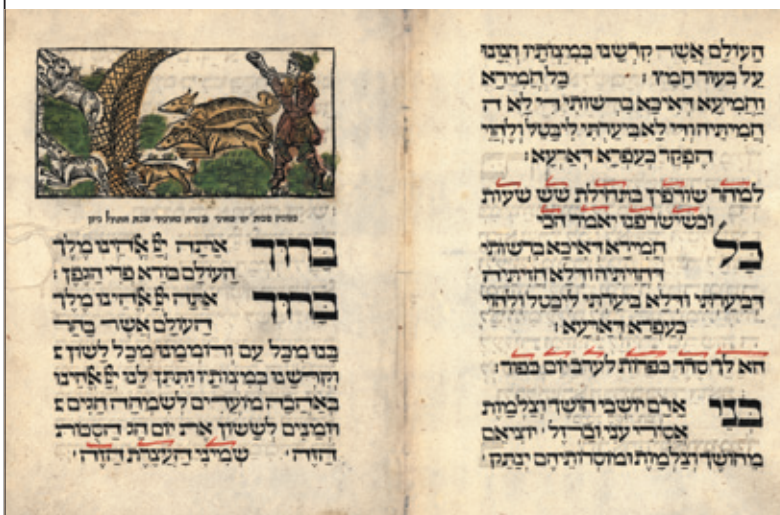 העולם אשר קדשנו במצותיו וצונו
על בעור חמיץ : כל חמירא
וחמיעא דאיכא ברשותי די לא ה
חמיתיה ודי לא ביערתי ליבטל ולהוי
הפקר כעפרא דארעא :
למחר שורפין בתחילת שש שעות
וכשישרפנו יאמר הכי
כל חמירא דאיכא ברשותי
דחזיתיה ודלא חזיתיה
דביערתי ודלא ביערתי ליבטל ולהוי
כעפרא דארעא :
הא לך סדר כפרות לערב יום כפור :
בני אדם יושבי חושך וצלמות
אסירי עני וברזל יוציאם
מחושך וצלמות ומוסרותיהם ינתק
ברוך אתה יי אלהינו מלך
העולם בורא פרי הגפן :
ברוך אתה יי אלהינו מלך
העולם אשר בחר
בנו מכל עם ורוממנו מכל לשון :
וקדשנו במצותיו ותתן לנו יי אלהינו
באהבה מועדים לשמחה חגים :
וזמנים לששון את יום חג הסכות
הזה שמיני העצרת הזה